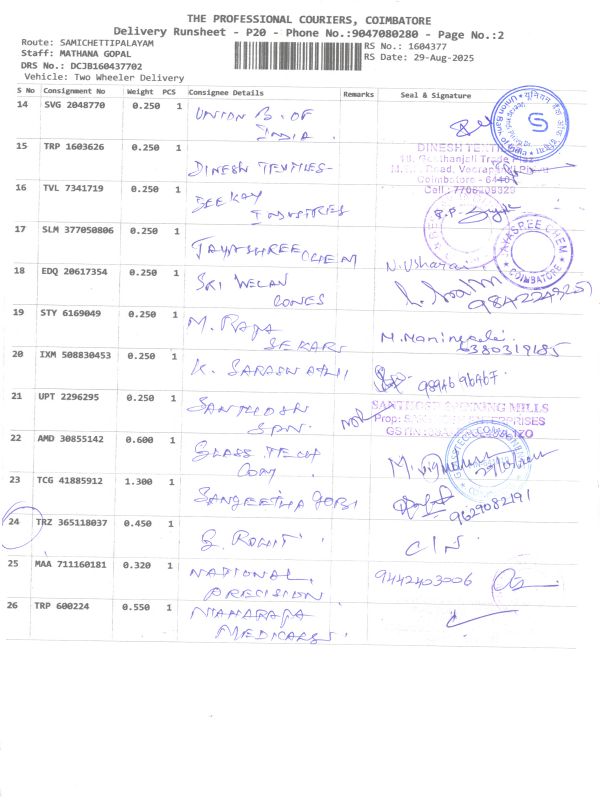 THE PROFESSIONAL COURIERS, COIMBATORE
Delivery Runsheet - P20 - Phone No.:9047080280 - Page No.:2
Route: SAMICHETTIPALAYAM
RS No.: 1604377
Staff: MATHANA GOPAL
RS Date: 29-Aug-2025
DRS No.: DCJB160437702
Vehicle: Two Wheeler Delivery
S No Consignment No Weight PCS Consignee Details Remarks Seal & Signature
14 SVG 2048770 0.250 1 UNION B. OF
INDIA
15 TRP 1603626 0.250 1 DINESH TEXTILES
DINESH
Coimbatore
16 TVL 7341719 0.250 1 BEE KAY
INDUSTRIES
17 SLM 377050806 0.250 1 JAYASHREE CHEM
JAYASREE CHEM
COIMBATORE
N. Usharani
18 EDQ 20617354 0.250 1 SRI VELAN
CONES
19 STY 6169049 0.250 1 M. RAJA
SEKAR
6380319185
20 IXM 508830453 0.250 1 K. SARASWATHI
21 UPT 2296295 0.250 1 SANTHOSH
SPN.
SANTHOSH SPINNING MILLS
22 AMD 30855142 0.600 1 GLASS TECH
COM
23 TCG 41885912 1.300 1 SANGEETHA GOBI
9629082191
24 TRZ 365118037 0.450 1 ROHIT
25 MAA 711160181 0.320 1 NATIONAL
PRECISION
9442403006
26 TRP 600224 0.550 1
MEDICALS